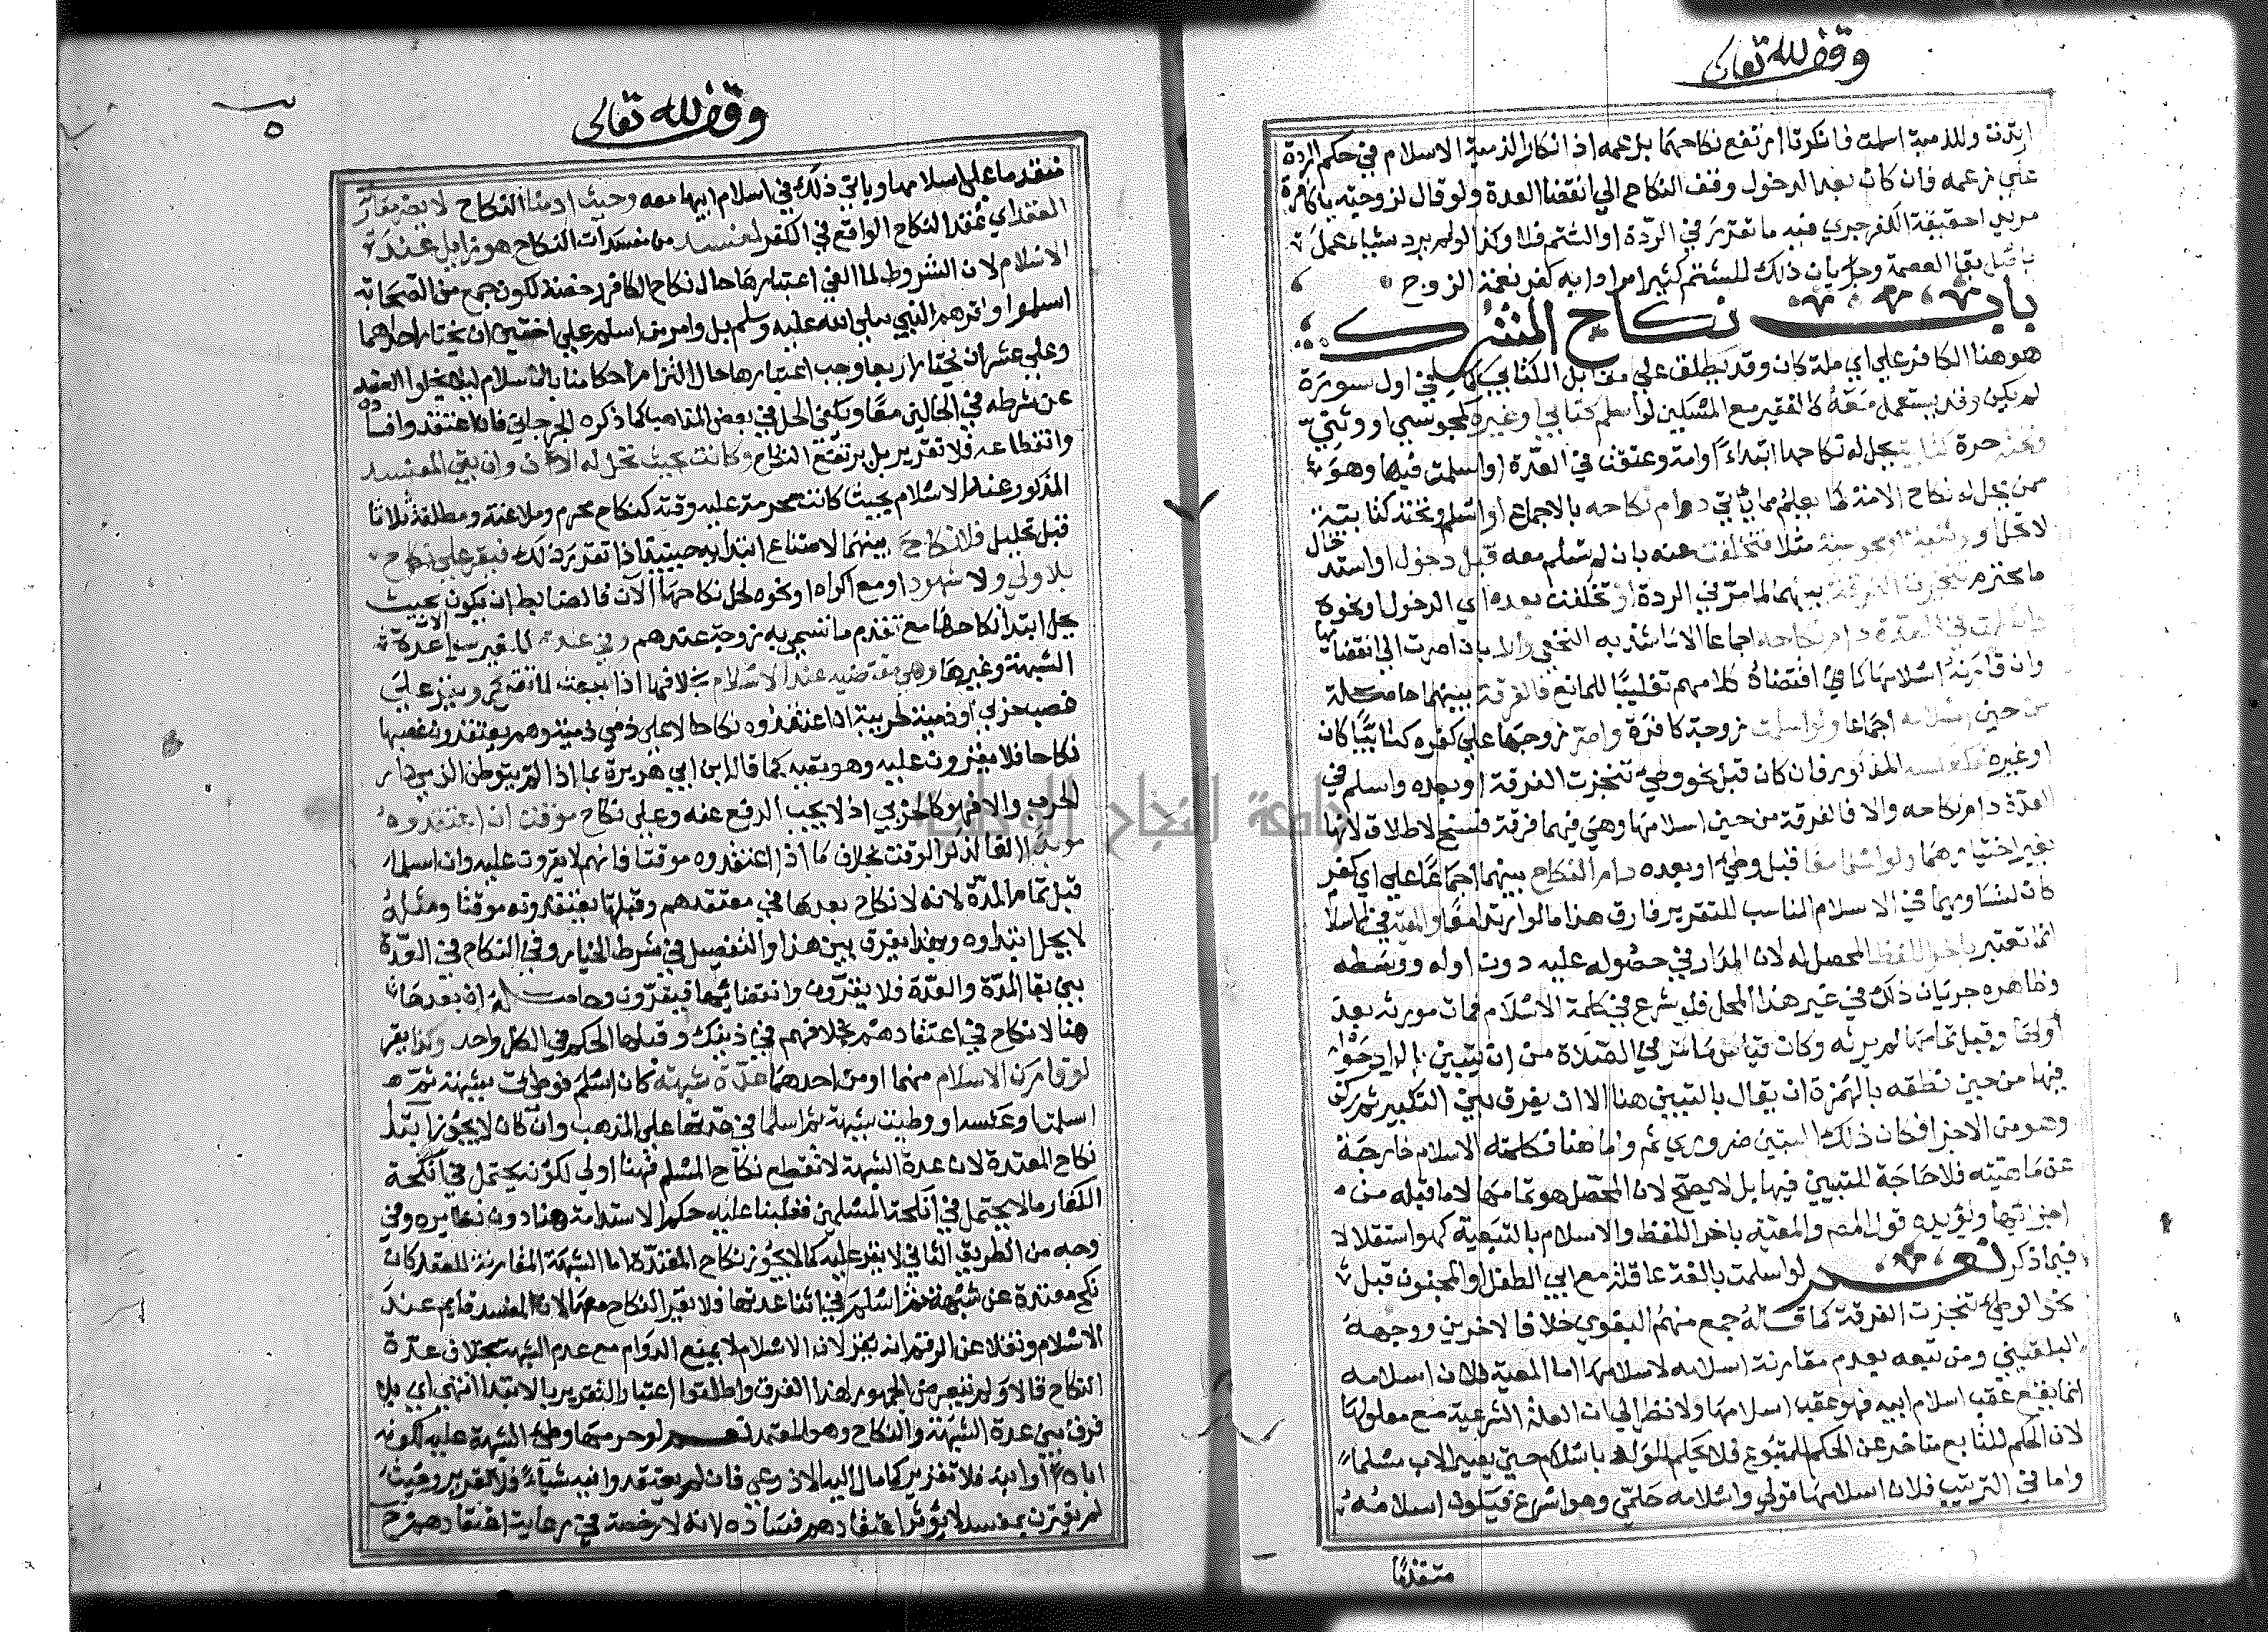 وقف لله تعالى
ارتدت وللذمية اسلمت فانكرتا ارتفع نكاحهما بزعمه اذ انكار الذمية الاسلام في حكم الردة
علي زعمه فان كان بعد الدخول وقف النكاح الي انقضا العدة ولو قال لزوجته يا كافرة
مريد احقيقة الكفر جري فيه ما تقرر في الردة او الشتم فلا وكذا لو لم يرد شيا عملا
باصل بقا العصمة وجريان ذلك للشتم كثيرا مرادا به كفر نعمة الزوج
باب نكاح المشرك
هو هنا الكافر علي اي ملة كان وقد يطلق علي مقابل الكتابي كما في اول سورة
لم يكن وقد يستعمل معه كالفقير مع المسكين لو اسلم كتابي او غيره كمجوسي او وثني
وتحته حرة كتابية يحل له نكاحها ابتداء او امة وعتقت في العدة او اسلمت فيها وهو
ممن يحل له نكاح الامة كما يعلم مما ياتي دوام نكاحه بالاجماع او اسلم وتحته كتابية
لا تحل او وثنية او مجوسية مثلا فتخلفت عنه بان لم تسلم معه قبل دخول او استدخال
ما محترم تنجزت الفرقة بينهما لما مر في الردة او تخلفت بعده اي الدخول او نحوه
واسلمت في العدة دام نكاحه اجماعا الا ما شذ به النخعي والا بان اصرت الي انقضائها
وان قارنه اسلامها كما في اقتضاه كلامهم تغليبا للمانع فالفرقة بينهما حاصلة
من حين اسلامه اجماعا ولو اسلمت زوجة كافرة واصر زوجها علي كفره كتابيا كان
او غيره فكعكسه المذكور فان كان قبل نحو وطئ تنجزت الفرقة او بعده واسلم في
العدة دام نكاحه والا فالفرقة من حين اسلامها وهي فيهما فرقة فسخ لا طلاق لانها
بغير اختيارهما ولو اسلما معا قبل وطئ او بعده دام النكاح بينهما اجماعا علي اي كفر
كان لتساويهما في الاسلام المناسب للتقرير فارق هذا ما لو ارتدا معا والمعية في الاسلام
انما تعتبر باخر اللفظ المحصل له لان المدار في حصوله عليه دون اوله ووسطه
وظاهره جريان ذلك في غير هذا المحل فلو شرع في كلمة الاسلام فمات مورثه بعد
اولها وقبل تمامها لم يرثه وكان قياس ما مر في الصلاة من ان يتبين بالرا دخوله
فيها من حين نطقه بالهمزة ان يقال بالتبيين هنا الا ان يفرق بين التكبير ثم ركن
وهو من الاجزا فكان ذلك التبين ضروري ثم واما هنا فكلمة الاسلام خارجة
عن ماهيته فلا حاجة للتبيين فيها بل لا يصح لان المحصل هو تمامها لا ما قبله من
اجزائها ويؤيده قول المصم والمعية باخر اللفظ والاسلام بالتبعية كهو استقلالا
فيما ذكر نعم لو اسلمت بالغة عاقلة مع ابي الطفل او المجنون قبل
نحو الوطئ تنجزت الفرقة كما قاله جمع منهم البغوي خلافا لاخرين ووجهه
البلقيني ومن تبعه بعدم مقارنة اسلامه لاسلامها اما المعية فلان اسلامه
انما يقع عقب اسلام ابيه فهو عقب اسلامها ولا نظر الي ان العلة الشرعية مع معلولها
لان الحكم للتابع متاخر عن الحكم للمتبوع فلا يحكم للولد باسلام حتي يصير الاب مسلما
واما في الترتيب فلان اسلامها قولي واسلامه حكمي وهو اسرع فيكون اسلامه
متقدما
وقف لله تعالى
متقدما علي اسلامها وياتي ذلك في اسلام ابيها معه وحيث ادمنا النكاح لا يضر مقارنة
العقد اي عقد النكاح الواقع في الكفر لمفسد من مفسدات النكاح هو زايل عند
الاسلام لان الشروط لما الغي اعتبارها حال نكاح الكافر رخصة لكون جمع من الصحابة
اسلموا واقرهم النبي صلي الله عليه وسلم بل وامر من اسلم علي اختين ان يختار احداهما
وعلي عشر ان يختار اربعا وجب اعتبارها حال التزام احكامنا بالاسلام ليلا يخلوا العقد
عن شرطه في الحالين معا ويكفي الحل في بعض المذاهب كما ذكره الجرجاني فان اعتقدوا فساده
وانقطاعه فلا تقرير بل يرتفع النكاح وكانت بحيث تحل له الان وان بقي المفسد
المذكور عند الاسلام بحيث كانت محرمة عليه وقته كنكاح محرم وملاعنة ومطلقة ثلاثا
قبل تحليل فلا نكاح بينهما لامتناع ابتدايه حينيذ اذا تقرر ذلك فيقر علي نكاح
بلا ولي ولا شهود او مع اكراه او نحوه لحل نكاحها الان فالضابط ان يكون بحيث
يحل ابتدا نكاحها الان مع تقدم ما تسمي به زوجة عندهم وفي عدة للغير سوا عدة
الشبهة وغيرها وهي منقضية عند الاسلام بخلاف ما اذا بقيت لما تقرر ويقر علي
غصب حربي او ذمية لحربية ان اعتقدوه نكاحا لا علي ذمي ذمية وهم يعتقدون غصبها
نكاحا فلا يقرون عليه وهو بقيد كما قال ابن ابي هريرة بما اذا لم يتوطن الذمي دار
الحرب والا فهو كالحربي اذ لا يجب الدفع عنه وعلي نكاح موقت ان اعتقدوه
موبدا الغا لذكر الوقت بخلاف ما اذا اعتقدوه موقتا فانهم لا يقرون عليه وان اسلما
قبل تمام المدة لانه لا نكاح بعدها في معتقدهم وقبلها يعتقدونه موقتا ومثله
لا يحل ابتداوه وبهذا يفرق بين هذا والتفصيل في شرط الخيار وفي النكاح في العدة
بين بقا المدة والعدة فلا يقرون وانقضائهما فيقرون وحاصله ان بعدها
هنا لا نكاح في اعتقادهم بخلافهم في ذينك وقبلها الحكم في الكل واحد وكذا يقر
لو قارن الاسلام منهما او من احدهما عدة شبهة كان اسلم فوطئت بشبهة ثم
اسلمت او عكسه او وطئت بشبهة ثم اسلما في عدتها علي المذهب وان كان لا يجوز ابتدا
نكاح المعتدة لان عدة الشبهة لا تقطع نكاح المسلم فهنا اولي لكونه يحتمل في انكحة
الكفار ما لا يحتمل في انكحة المسلمين فغلبنا عليه حكم الاستدامة هنا دون نظايره وفي
وجه من الطريق الثاني لا يقر عليه كما لا يجوز نكاح المعتدة اما الشبهة المقارنة للعقد كان
نكح معتدة عن شبهة ثم اسلم في اثنا عدتها فلا يقر النكاح معها لان المفسد قايم عند
الاسلام ونقلا عن الرقم انه يقر لان الاسلام لا يمنع الدوام مع عدم الشبهة بخلاف عدة
النكاح قالا ولم يتعرض الجمهور لهذا الفرق واطلقوا اعتبار التقرير بالابتدا انتهي اي بلا
فرق بين عدة الشبهة والنكاح وهو المعتمد نعم لو حرمها وطئ الشبهة عليه لكونه
اباه او ابنه فلا تقرير كما مال اليه الاذرعي فان لم يعتقدوا فيه شيا فلا تقرير وحيث
لم يقترن بمفسد لا يؤثر اعتقادهم فساده لانه لا رخصة في رعاية اعتقادهم ح